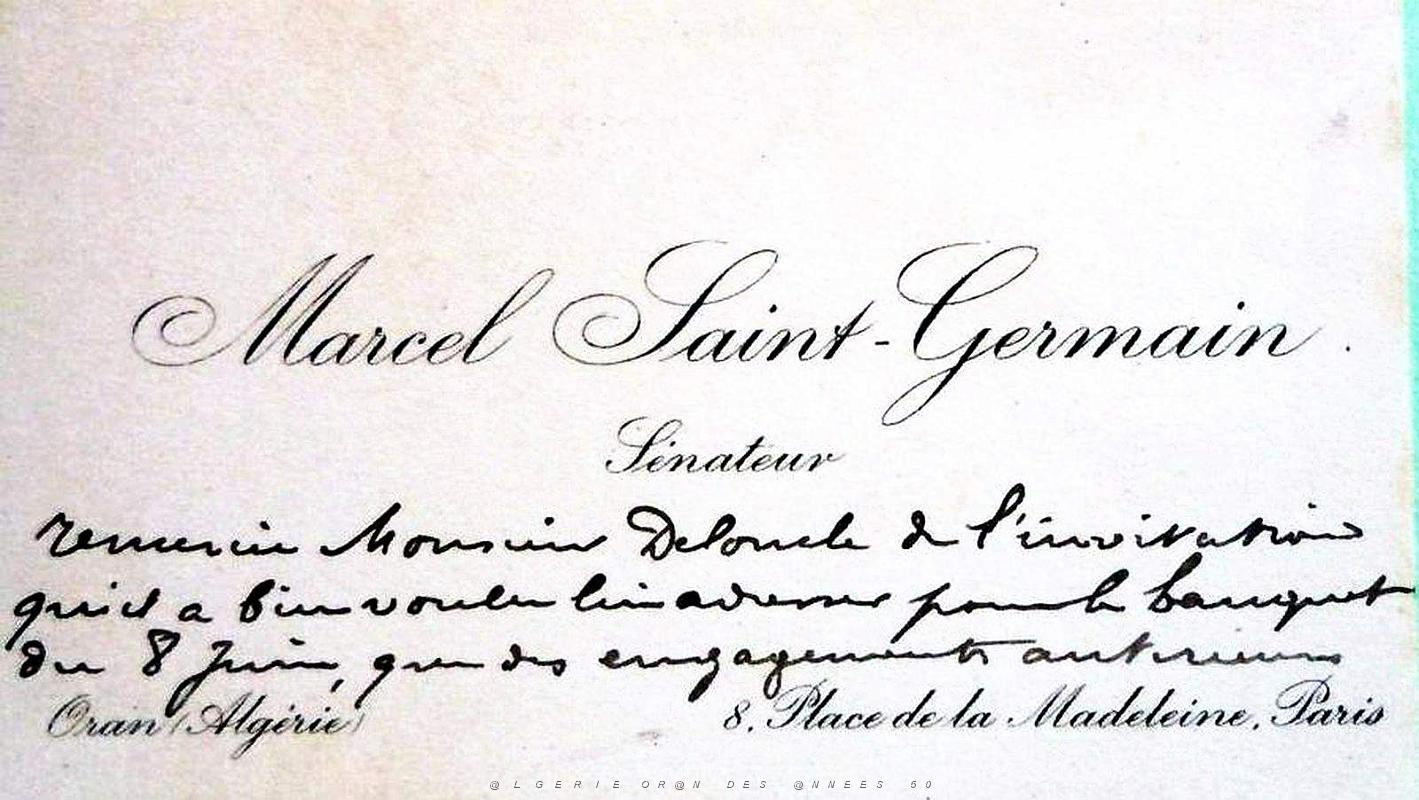 Marcel Saint-Germain
Sénateur
remercie Monsieur Deloncle de l'invitation
qu'il a bien voulu lui adresser pour le banquet
du 8 Juin, que des engagements antérieurs
Oran (Algérie) 8, Place de la Madeleine, Paris
@LGERIE OR@N DES @NNEES 50